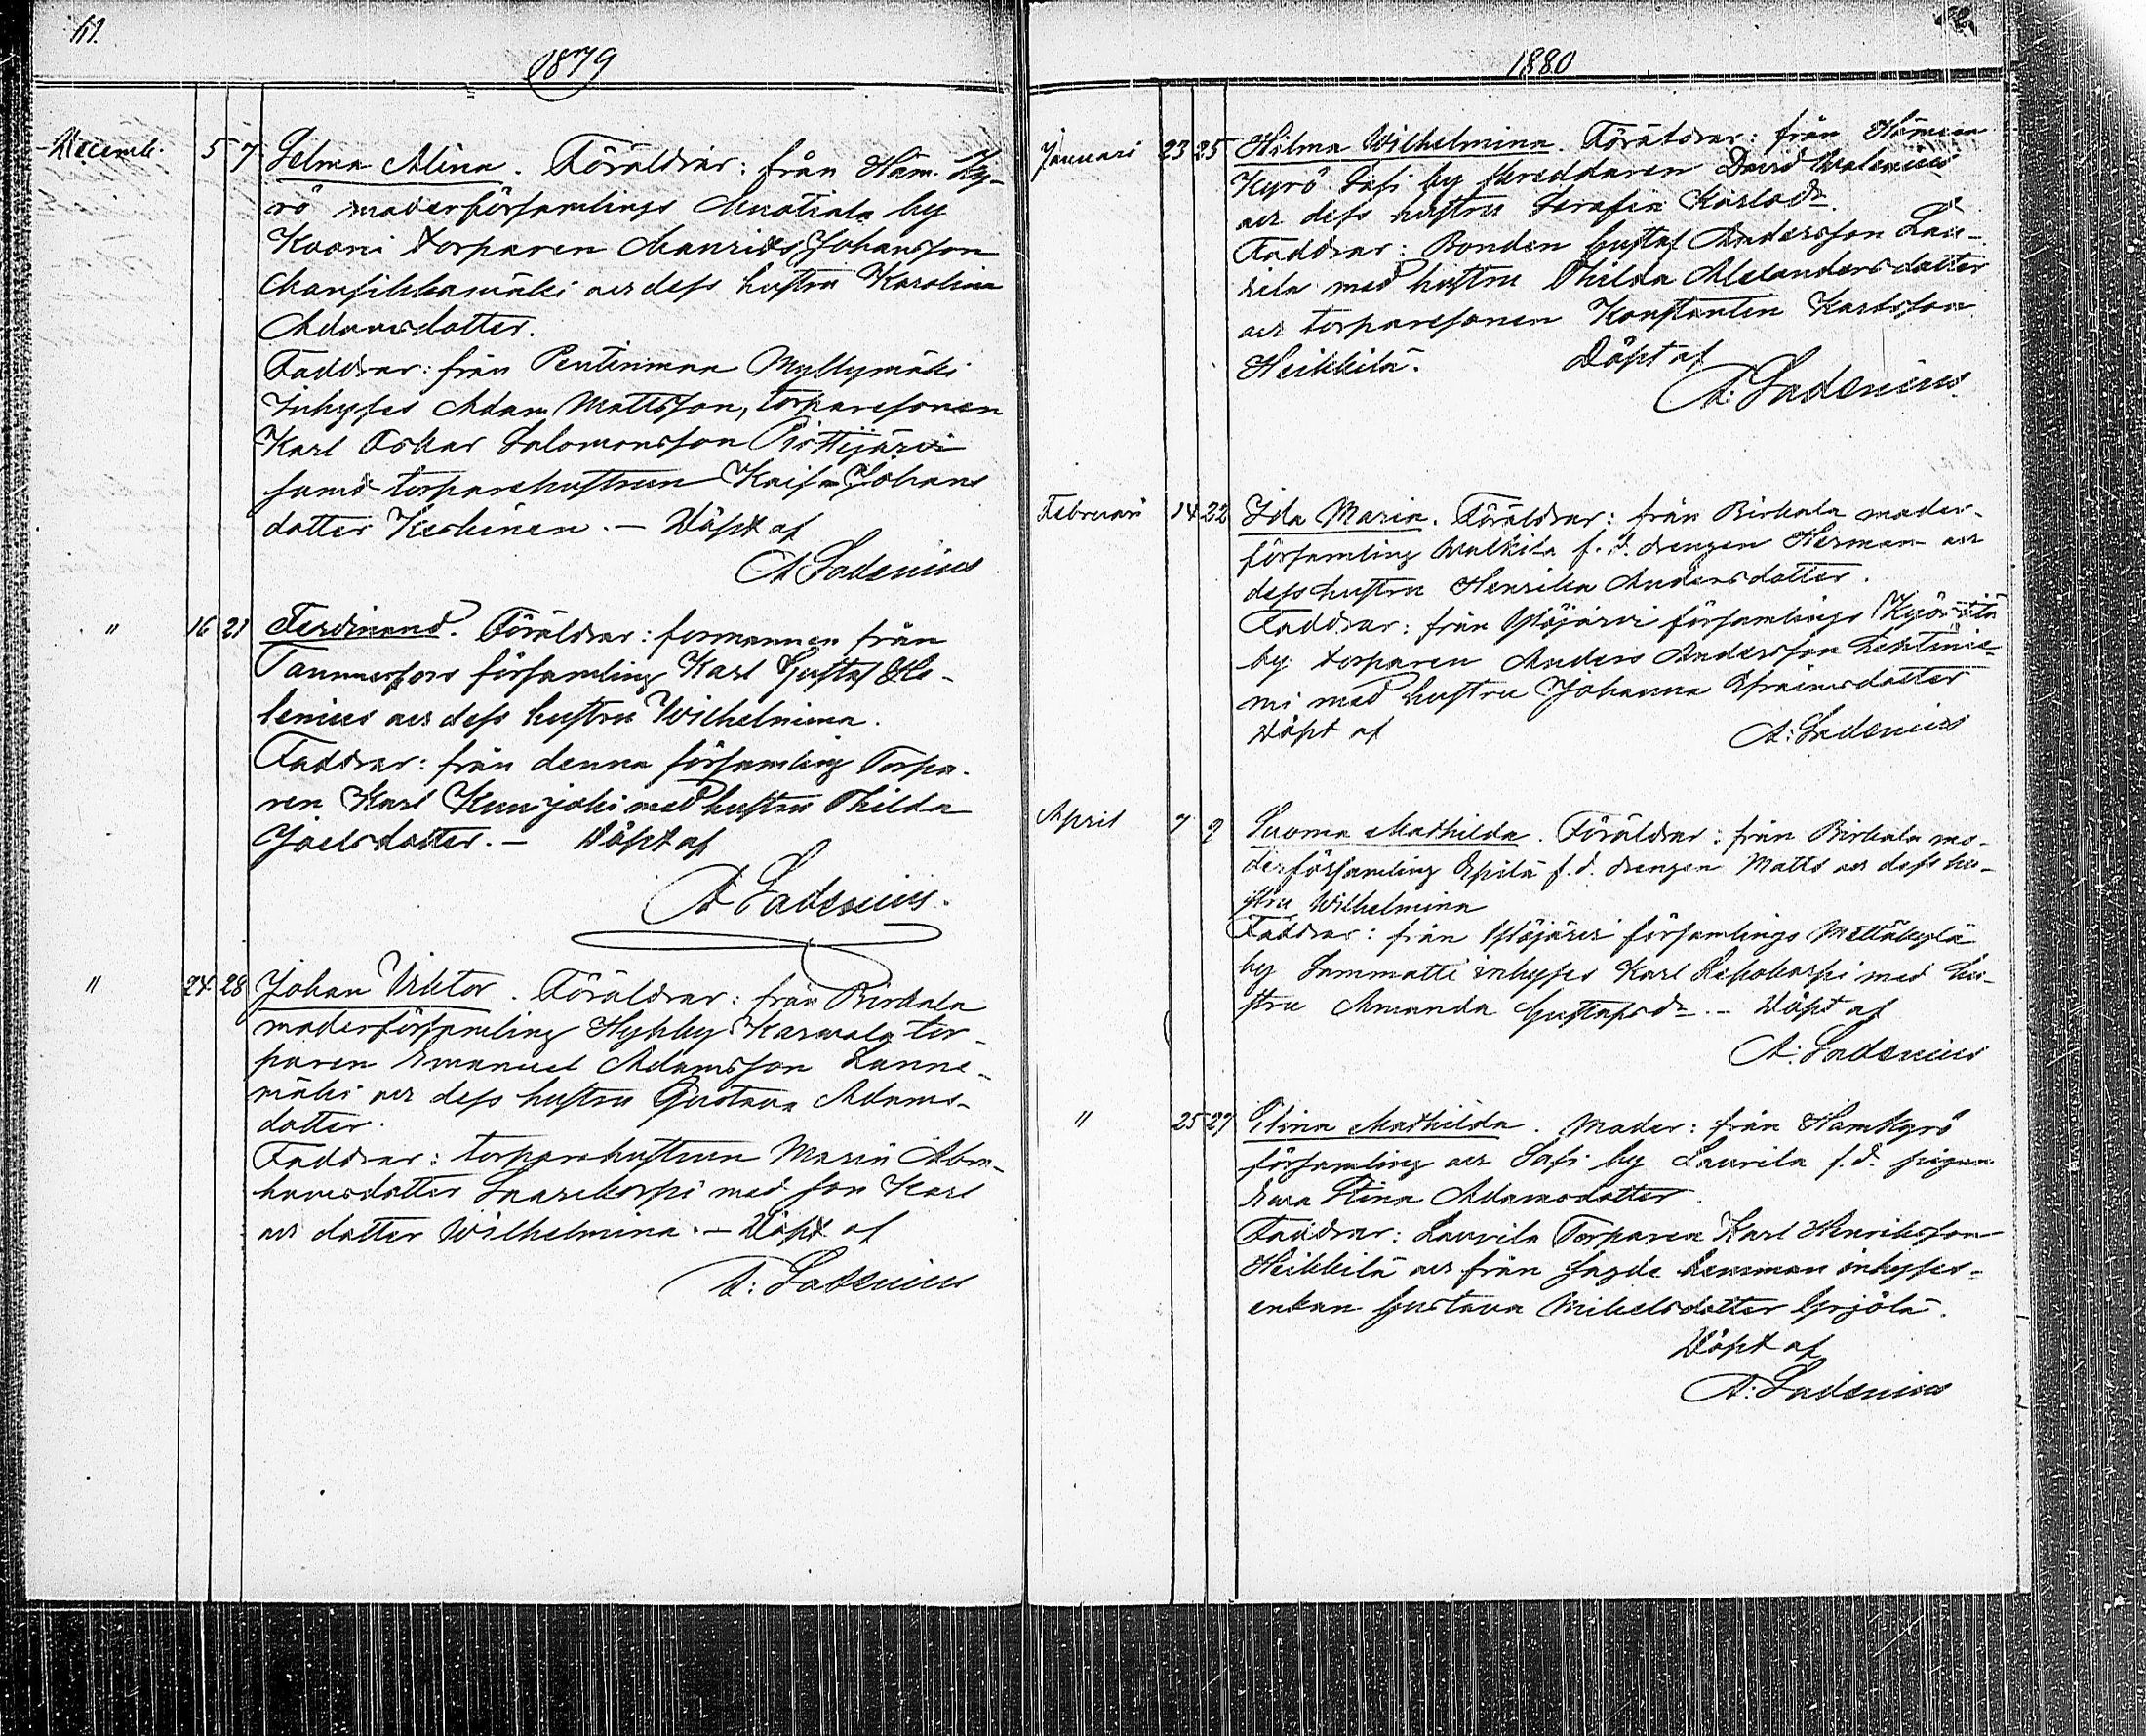 51.
1879
Decemb. 5 7 Selma Alina. Föräldrar: från Ham. Ky-
rö moderförsamlings by
torparen Maurits Johansson
Mansikkamäki och dess hustru Karolina
Adamsdotter.
Faddrar: från Pentinmaa Myllymäki
Inhyses Adam Mattsson, torparesonen
Karl Oskar Salomonsson
samt torparehustrun Kaisa Johans
dotter Keskinen. — Döpt af
A. Ladenius
" 16 21 Ferdinand. Föräldrar: formannen från
Tammerfors församling Karl Gustaf He-
lenius och dess hustru Wilhelmina.
Faddrar: från denna församling Torpa-
ren Karl Kuusjoki med hustru Thilda
Joelsdotter. — Döpt af
A Ladenius.
" 24 28 Johan Viktor. Föräldrar: från Birkala
moderförsamling Hyhky tor-
paren Emanuel Adamsson Lanne-
mäki och dess hustru Gustava Adams-
dotter.
Faddrar: torparehustrun Maria Abra-
hamsdotter Saarikorpi med son Karl
och dotter Wilhelmina. — Döpt af
A: Ladenius
52.
1880
Januari 23 25 Hilma Wilhelmina. Föräldrar: från Hämeen
Kyrö Sasi by skreddaren David Walenius
och dess hustru Serafia Karlsdr.
Faddrar: Bonden Gustaf Andersson Lau-
rila med hustru Thilda Alexandersdotter
och torparesonen Konstantin Karlsson
Heikkilä. Döpt af
A. Ladenius.
Februari 14 22 Ida Maria. Föräldrar: från Birkala moder-
församling Walkila f. d. drengen Herman och
dess hustru Henrika Andersdotter.
Faddrar: från Ylöjärvi församlings
by torparen Anders Andersson Lehtinie-
mi med hustru Johanna Efraimsdotter
Döpt af A: Ladenius
April 7 9 Suoma Mathilda. Föräldrar: från Birkala mo-
derförsamling Epilä f. d. drengen Matts och dess hu-
stru Wilhelmina
Faddrar: från Ylöjärvi församlings Mettäkylä
by Sammatti inhyses Karl Repokorpi med hu-
stru Amanda Gustafsdr. — Döpt af
A: Ladenius
" 25 27 Stina Mathilda. Moder: från HamKyrö
församling och Sasi by Laurila f. d. pigan
Eva Stina Adamsdotter.
Faddrar: Laurila Torparen Karl Henriksson
Heikkilä och från sagde hemman inhyses-
enkan Gustava Mikelsdotter Yrjölä.
Döpt af
A: Ladenius